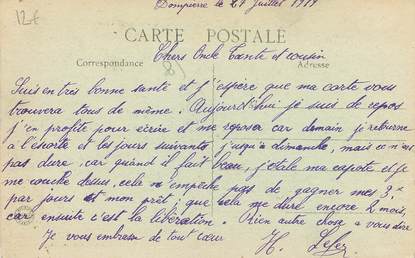 Dompierre le 27 Juillet 1919
12f
CARTE POSTALE
Chers Oncle Tante et cousin
Correspondance
Adresse
Suis en très bonne santé et j'espère que ma carte vous
trouvera tous de même. Aujourd'hui je suis de repos
j'en profite pour écrire et me reposer car demain je retourne
à l'escorte et les jours suivants jusqu'à dimanche, mais ce n'est
pas dure, car quand il fait beau, j'étale ma capote et je
me couche dessus, cela n'empêche pas de gagner mes 3,
par jours et mon prêt; que cela me dure encore 2 mois,
car ensuite c'est la libération. Rien autre chose à vous dire
Je vous embrasse de tout cœur
H.